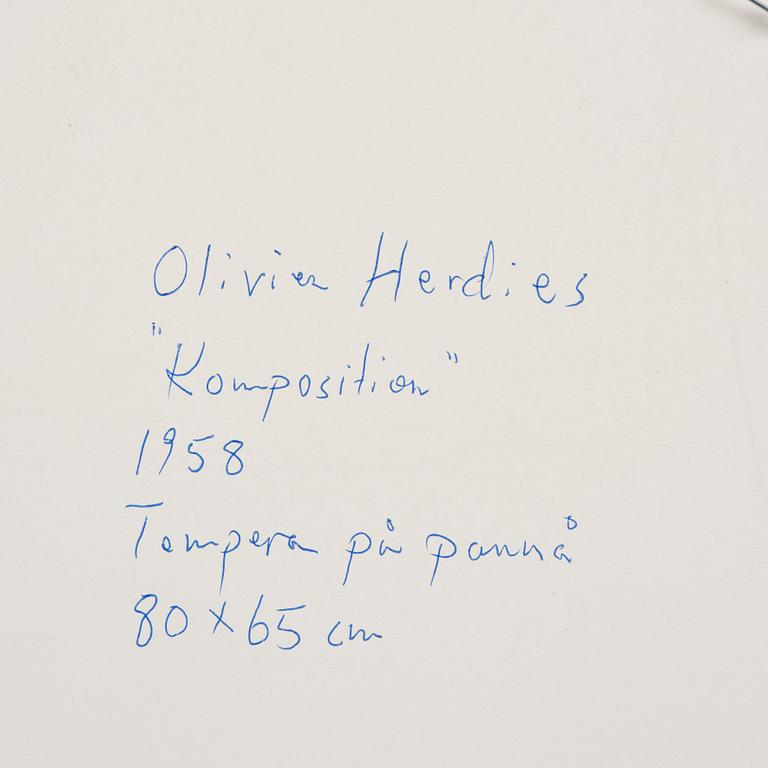 Olivier Herdies
"Komposition"
1958
Tempera på pannå
80 x 65 cm